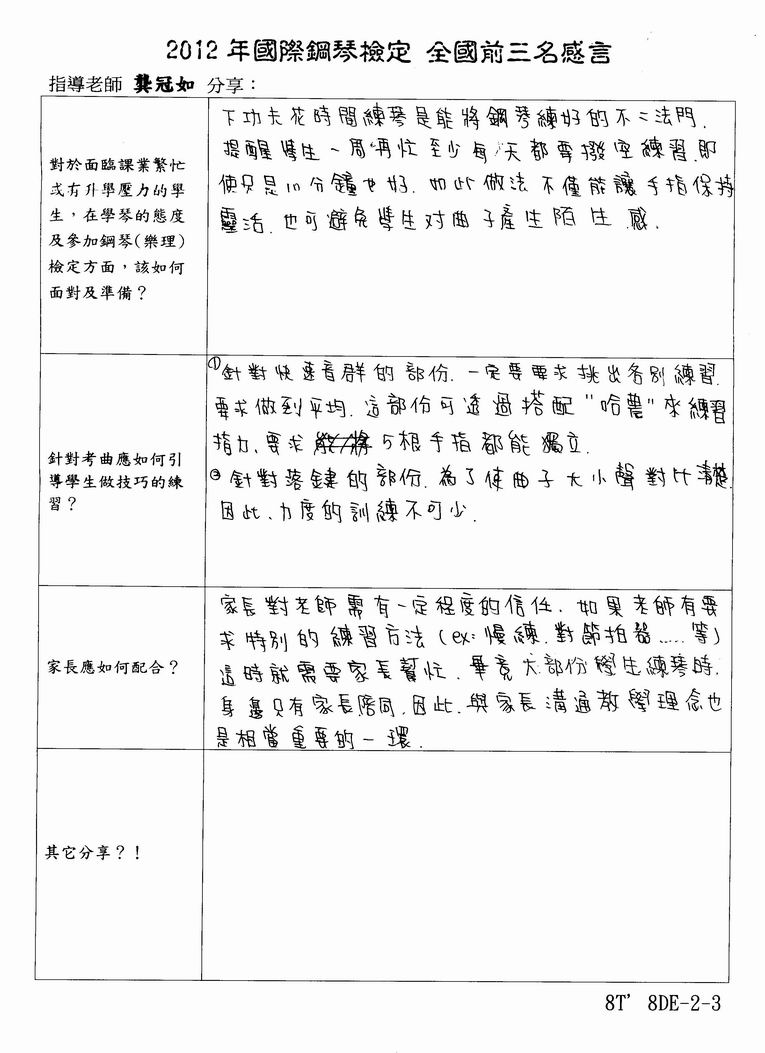 2012 年國際鋼琴檢定 全國前三名感言
指導老師 龔冠如 分享：
對於面臨課業繁忙
或有升學壓力的學
生，在學琴的態度
及參加鋼琴(樂理)
檢定方面，該如何
面對及準備？
下功夫花時間練琴是能將鋼琴練好的不二法門.
提醒學生一周再忙至少每天都要撥空練習.即
使只是10分鐘也好. 如此做法不僅能讓手指保持
靈活.也可避免學生对曲子產生陌生感.
針對考曲應如何引
導學生做技巧的練
習？
①針對快速音群的部份.一定要要求挑出各別練習.
要求做到平均.這部份可透過搭配"哈農"來練習
指力.要求 5根手指都能獨立.
②針對落鍵的部份.為了使曲子大小聲對比清楚.
因此、力度的訓練不可少.
家長應如何配合？
家長對老師需有一定程度的信任. 如果老師有要
求特別的練習方法(ex:慢練.對節拍器.....等)
這時就需要家長幫忙.畢竟大部份學生練琴時.
身邊只有家長陪同.因此.與家長溝通教學理念也
是相當重要的一環.
其它分享？！
8T' 8DE-2-3